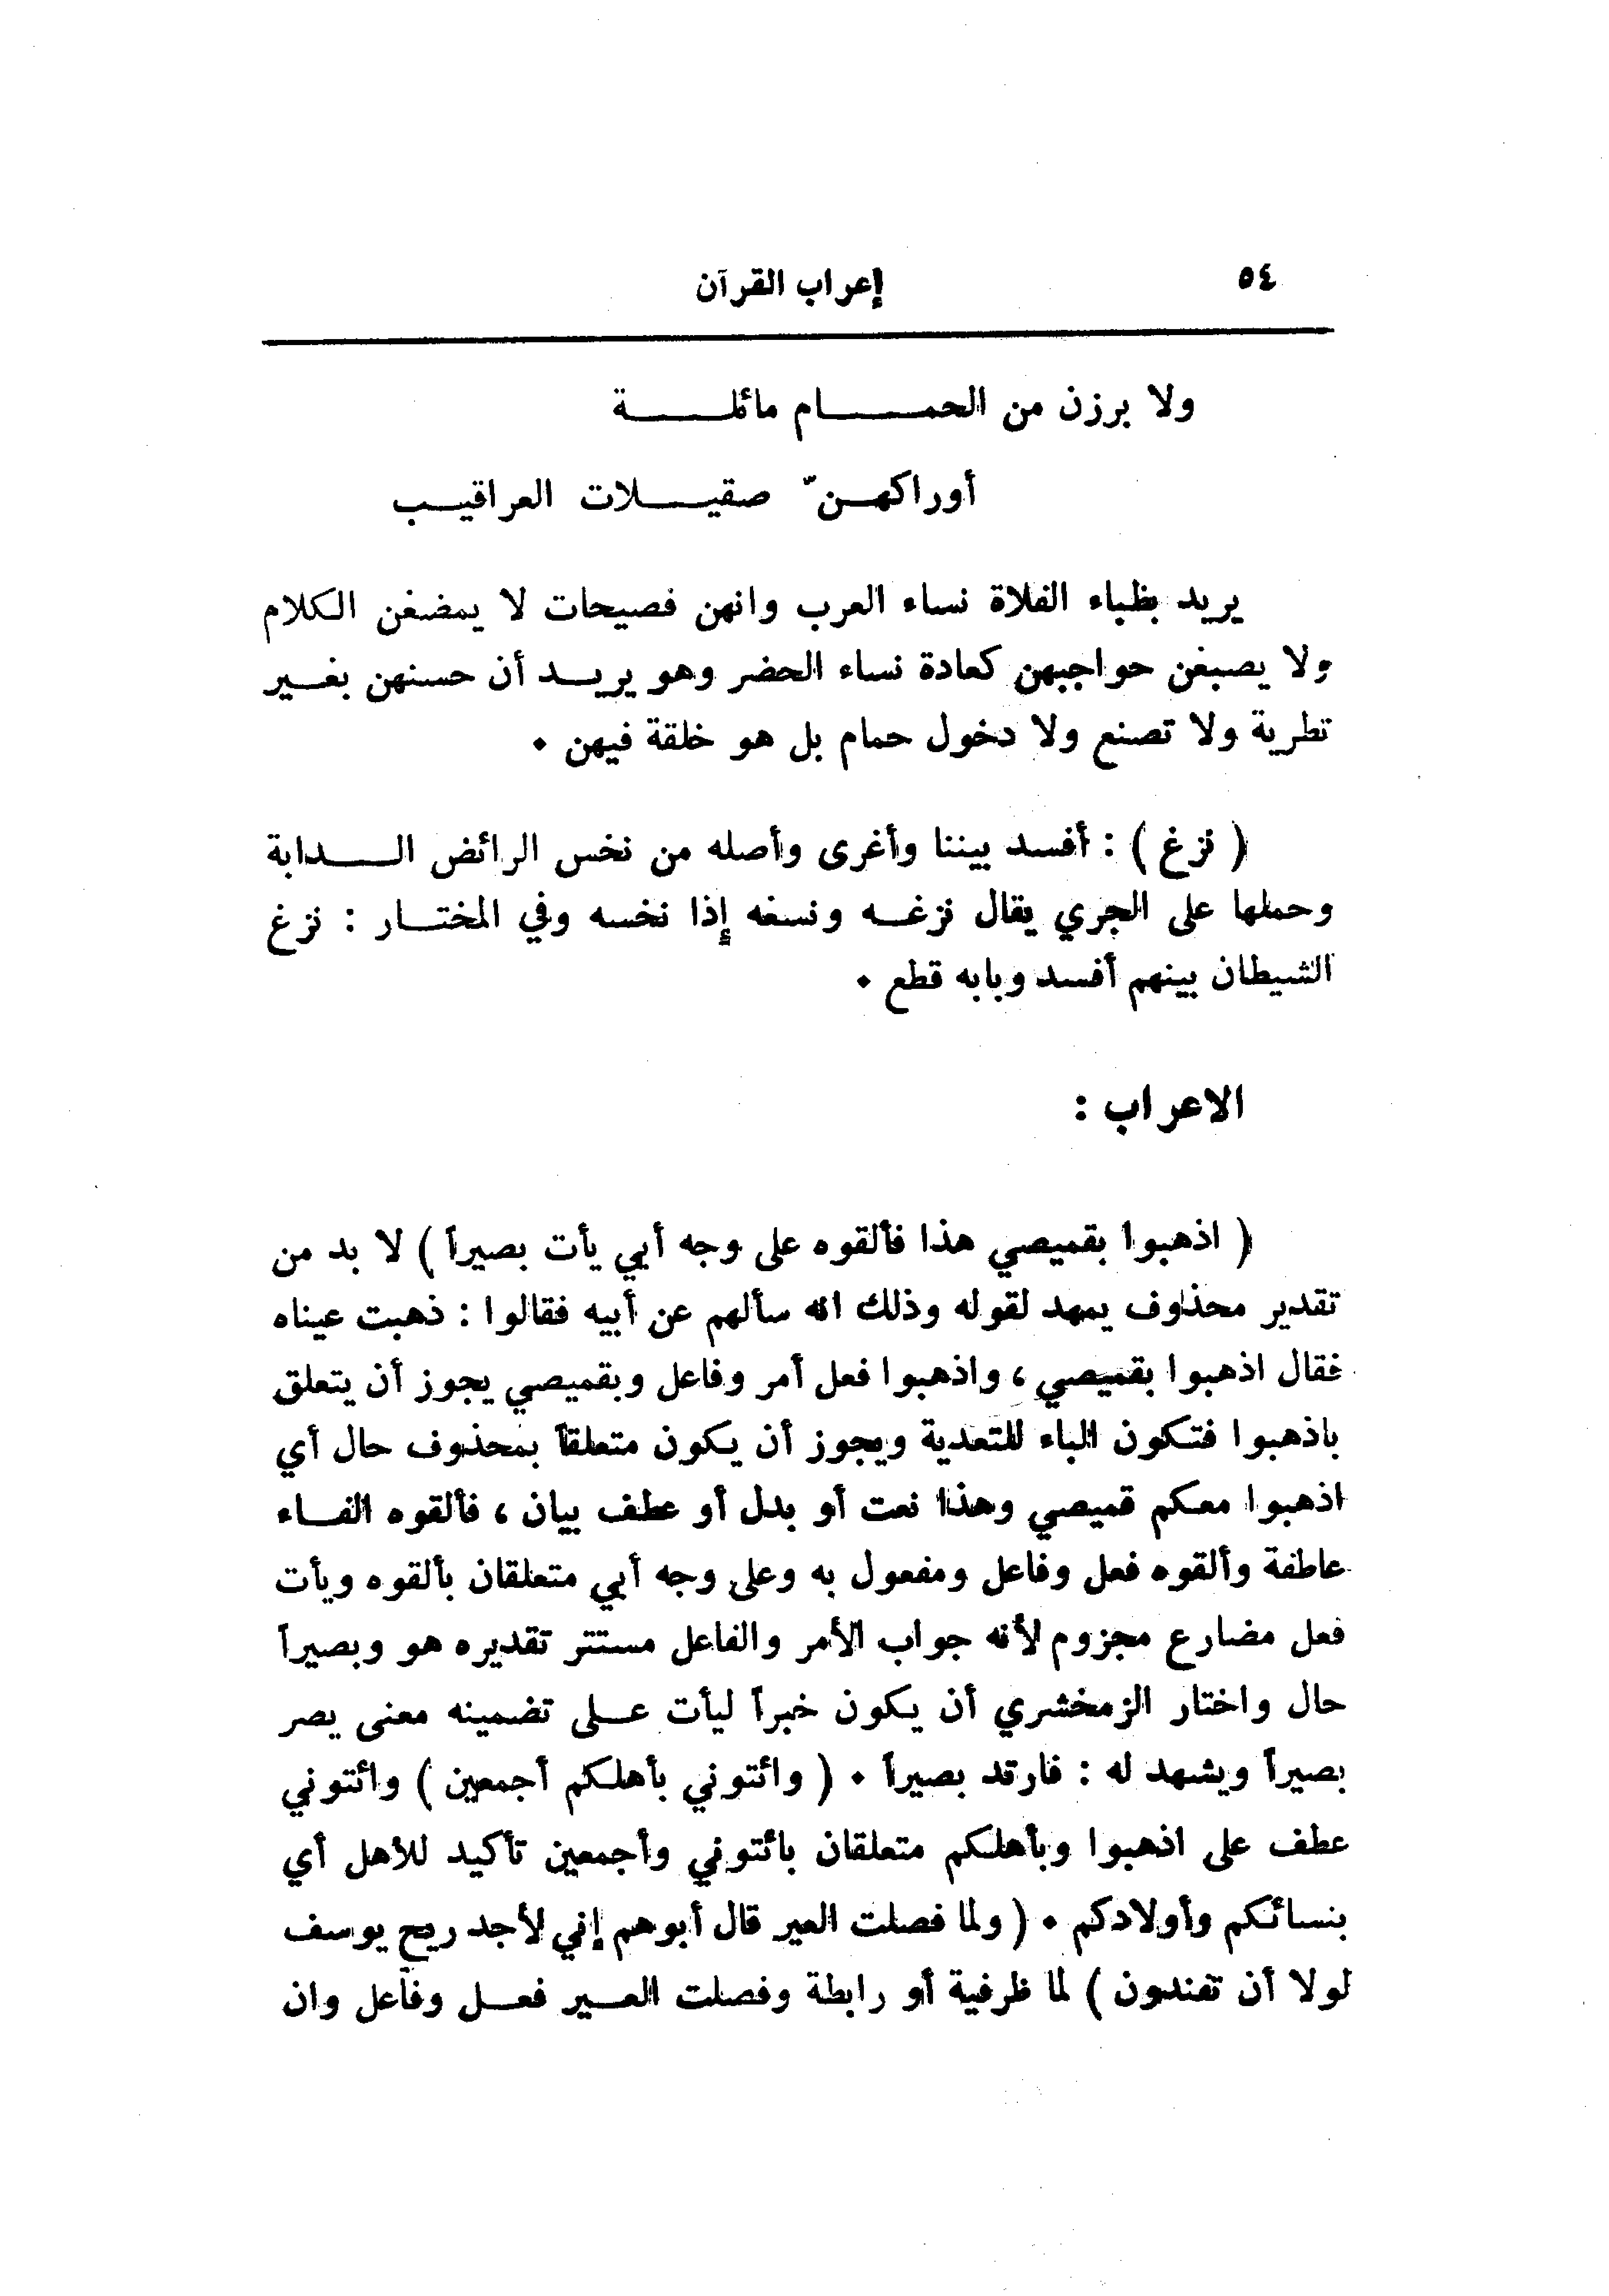 ٥٤
إعراب القرآن
ولا برزن من الحمام مائلة
أوراكهنّ صقيلات العراقيب
يريد بظباء الفلاة نساء العرب وانهن فصيحات لا يمضغن الكلام
ولا يصبغن حواجبهن كعادة نساء الحضر وهو يريد أن حسنهن بغير
تطرية ولا تصنع ولا دخول حمام بل هو خلقة فيهن ٠
( نزغ ) : أفسد بيننا وأغرى وأصله من نخس الرائض الدابة
وحملها على الجري يقال نزغه ونسغه إذا نخسه وفي المختار : نزغ
الشيطان بينهم أفسد وبابه قطع ٠
الاعراب :
( اذهبوا بقميصي هذا فألقوه على وجه أبي يأت بصيراً ) لا بد من
تقدير محذوف يمهد لقوله وذلك انه سألهم عن أبيه فقالوا : ذهبت عيناه
فقال اذهبوا بقميصي ، واذهبوا فعل أمر وفاعل وبقميصي يجوز أن يتعلق
باذهبوا فتكون الباء للتعدية ويجوز أن يكون متعلقاً بمحذوف حال أي
اذهبوا معكم قميصي وهذا نعت أو بدل أو عطف بيان ، فألقوه الفاء
عاطفة وألقوه فعل وفاعل ومفعول به وعلى وجه أبي متعلقان بألقوه ويأت
فعل مضارع مجزوم لأنه جواب الأمر والفاعل مستتر تقديره هو وبصيراً
حال واختار الزمخشري أن يكون خبراً ليأت على تضمينه معنى يصر
بصيراً ويشهد له : فارتد بصيراً ٠ ( وائتوني بأهلكم أجمعين ) وائتوني
عطف على اذهبوا وبأهلكم متعلقان بائتوني وأجمعين تأكيد للأهل أي
بنسائكم وأولادكم ٠ ( ولما فصلت العير قال أبوهم إني لأجد ريح يوسف
لولا أن تفندون ) لما ظرفية أو رابطة وفصلت العير فعل وفاعل وان